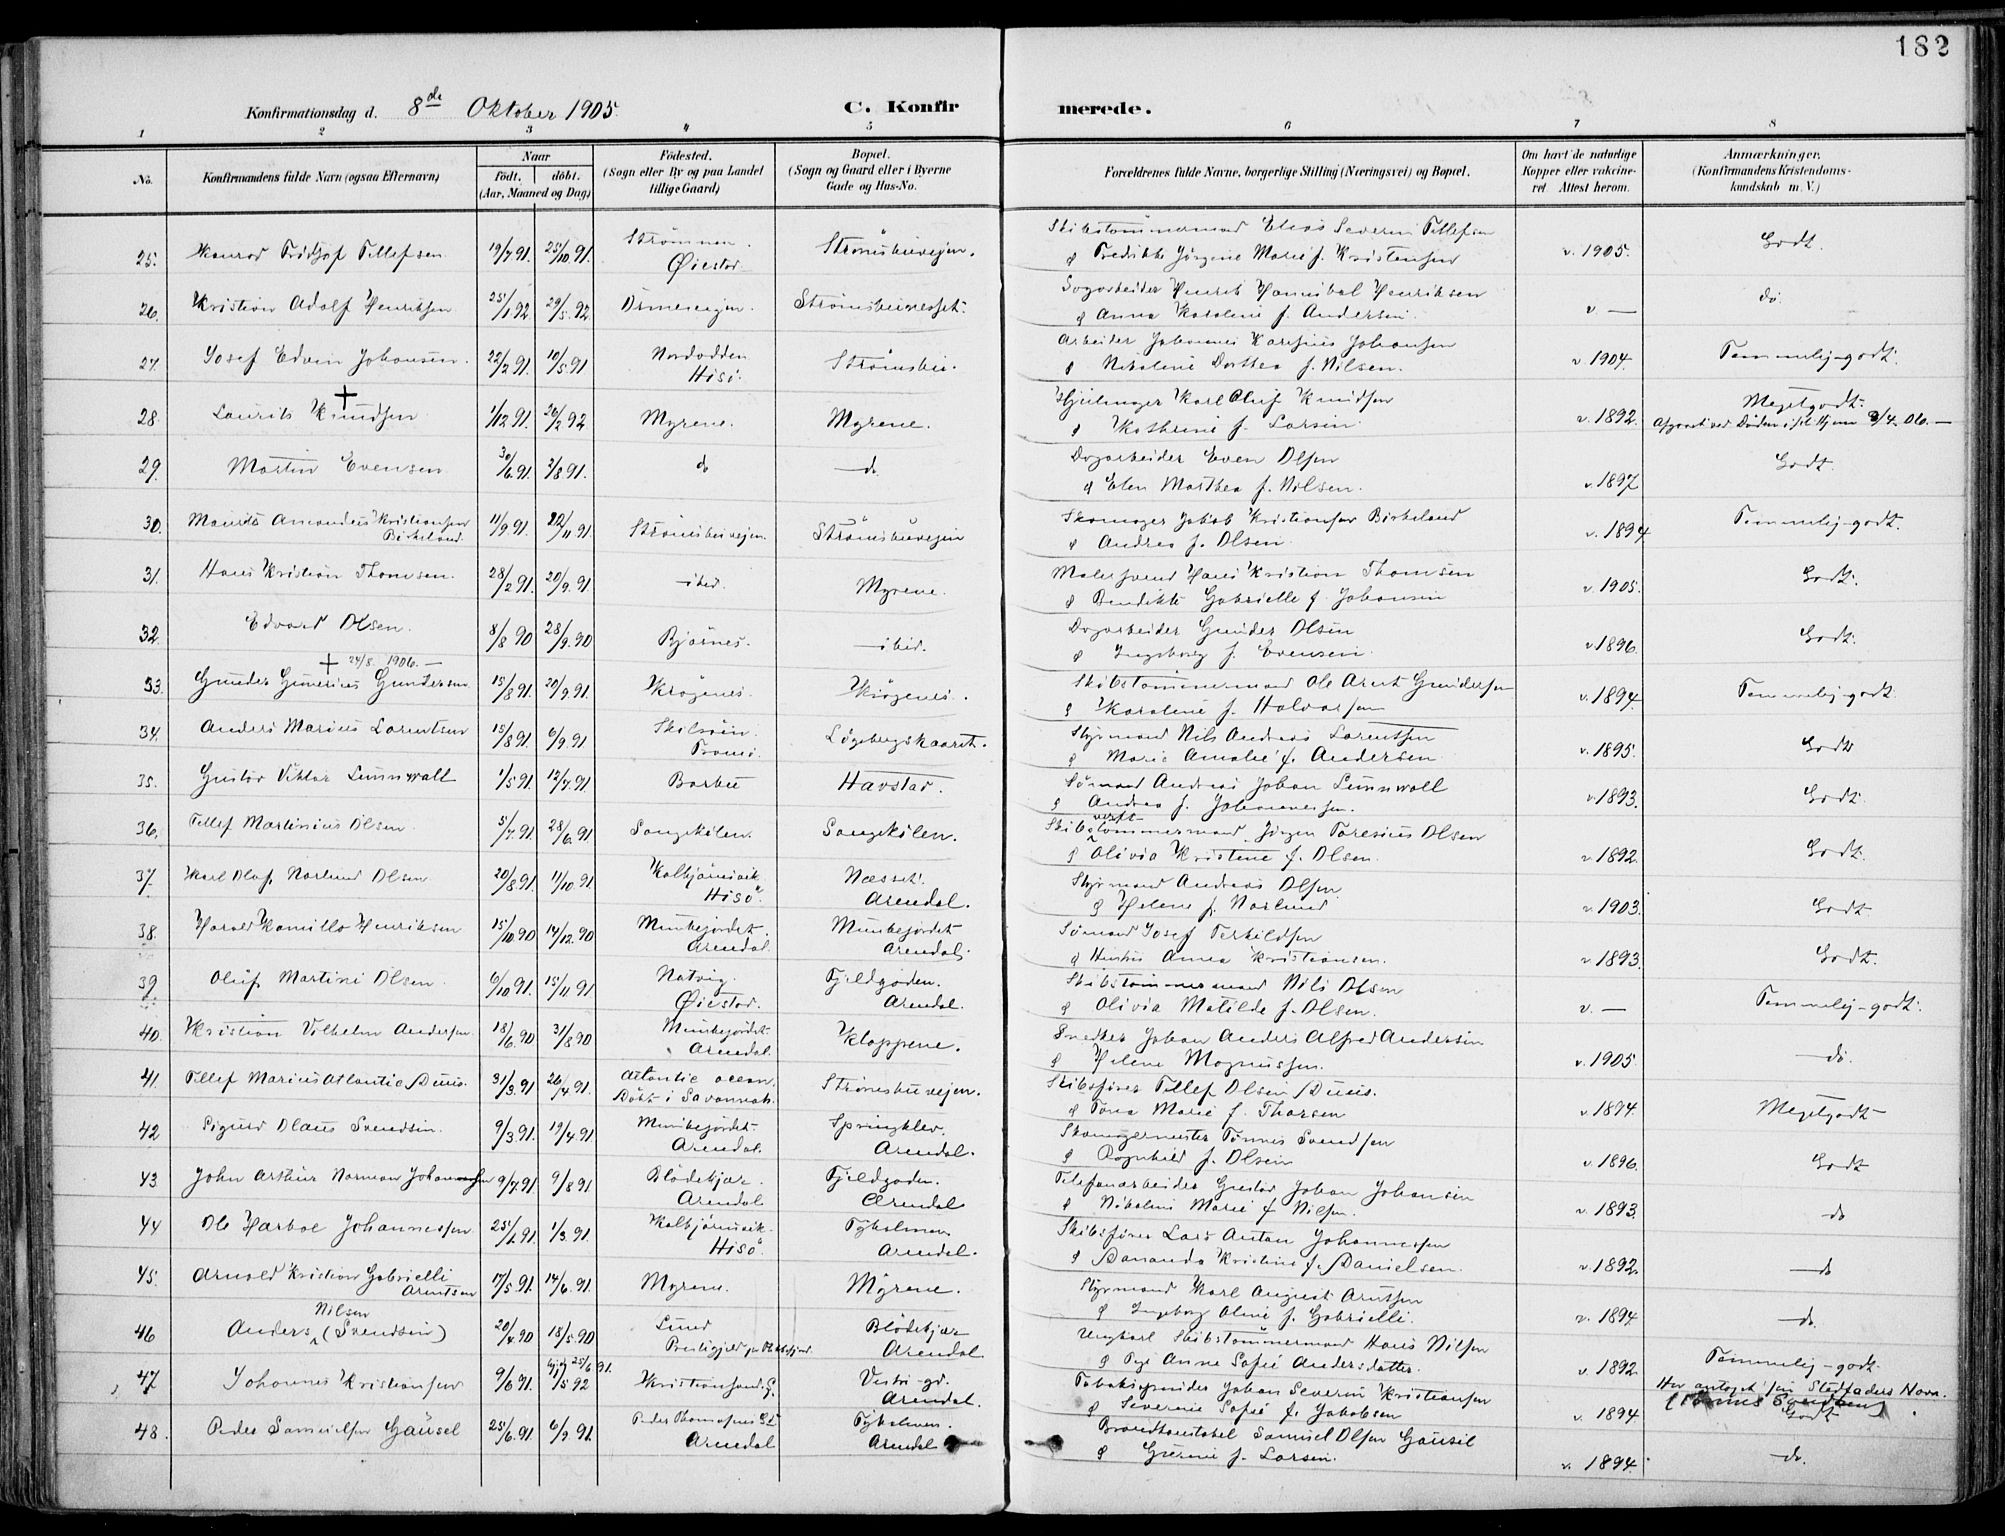 182
Konfirmationsdag d. 8de Oktober 1905. C. Konfirmerede.
1 2 3 4 5 6 7 8
No. Konfirmandens fulde Navn (ogsaa Efternavn) Naar født, døbt. (Aar, Maaned og Dag) Fødested. (Sogn eller By og paa Landet tillige Gaard) Bopæl. (Sogn og Gaard eller i Byerne Gade og Hus-No. Forældrenes fulde Navne, borgerlige Stilling (Næringsvei) og Bopæl. Om havt de naturlige Kopper eller vakcineret. Attest herom. Anmærkninger. (Konfirmandens Kristendomskundskab m. V.)
25. Konrad Tellefsen 19/7 91. 25/10 91. Strømmen. Øiestad. Strømsbuveien. Skibstømmermand Elias Severin Tellefsen & Fredrikke Jørgine Marie f. Kristensen v. 1905. Godt.
26. Kristian Adolf Henriksen 25/1 92. 29/5. 92. Strømsbunesset. Henrik Hannibal Henriksen & Anna Karoline f. Andersen. v. — do.
27. Josef Edvin Johansen. 22/2 91. 10/5 91 Nordodden Hisø. Strømsbu. Arbeider Johannes Johansen & Nikoline Dorthea f. Nilsen. v 1904. Temmelig-godt.
28. Laurits Knudsen + 1/12 91. 26/2 92 Myrene. Myrene. Karl Oluf Knudsen & Kathrine f. Larsen. v. 1892. Megetgodt.
29. Martin Evensen 30/6 91. 2/8 91. do —do. Dagarbeider Even Olsen & Elen Marthea f. Nilsen. v. 1897 Godt.
30. Amandus Kristiansen Birkeland. 11/9 91. 22/11 91. Strømsbuveien. Strømsbuveien Skomager Jakob Kristiansen Birkeland & Andrea f. Olsen. v. 1894 Temmelig-godt.
31. Hans Kristian Thomsen. 28/2 91. 20/9. 91. —ibid. Myrene. Malersvend Hans Kristian Thomsen & Bendikte Gabrielle f. Johansen v. 1905. Godt.
32. Edvard Olsen. 8/8 90 28/9. 90 Bjørnes. —ibid. Dagarbeider Gunder Olsen & Ingeborg f. Evensen. v. 1896. Godt.
+ 24/8. 1906. —
33. Gunder Gunerius Gundersen 15/8 91. 20/9. 91. Krøgenes. Krøgenes. Skibstømmermand Ole Arnt Gundersen & Karoline f. Halvorsen v. 1894. Temmelig-godt.
34. Anders Marius Lorentsen 15/8 91. 6/9. 91 Skilsøen. Tromø. Løgebergskaaret. Styrmand Nils Andreas Lorentsen & Marie Amalie f. Andersen. v. 1895. Godt
35. Gustav Viktor Sunnwall 1/5 91. 12/7. 91 Barbu Havstad. Sømand Andreas Johan Sunnwall & Andrea f. Johannessen. v. 1893. Godt.
36. Tellef Martinius Olsen. 5/7. 91. 28/6. 91. Songekilen. Songekilen. Skibstømmermand Jørgen Olsen & Olivia Kristine f. Olsen. v. 1892. Godt.
37. Karl Olaf Norlund Olsen 20/8 91. 11/10. 91. Kolbjørnsvik Hisø. Næsset. Arendal. Styrmand Andreas Olsen & Helene f. Norlund v. 1903. Godt
38. Harald Kamillo Henriksen 15/10 90 14/12. 90 Munkejordet. Arendal. Munkejordet Arendal. Sømand Josef Terkildsen & Hustru Anna Kristiansen. v 1893. Godt.
39 Oluf Martin Olsen. 6/10 91. 15/11. 91 Natvig. Øiestad. Fjeldgaden. Arendal. Skibstømmermand Nils Olsen & Olivia Matilde f. Olsen. v. — Temmelig-godt.
40. Kristian Vilhelm Andersen. 18/6. 90 31/8 90 Munkejordet Arendal. Kloppene. Snedker Johan Anders Alfred Andersen & Helene Magnussen. v. 1905 —do.
41. Tellef Marius Atlantic Duus. 31/3. 91 26/4 91. Atlantic ocean. Døbt i Savannah. Strømsbuveien. Skibsfører Tellef Olsen Duus. & Tona Marie f. Thorsen v. 1894. Megetgodt
42 Sigurd Olaus Svendsen. 9/3. 91. 19/4. 91. Munkejordet Arendal. Springklev. Arendal. Skomagermester Tønnes Svendsen & Ragnhild f. Olsen v. 1896. Godt
43 John Arthur Norman Johannessen 9/7. 91. 9/8 91 Blødekjær. Arendal Fjeldgaden. Arendal Telefonarbeider Gustav Johan Johansen & Nikoline Marie f Nilsen. v. 1893. do
44 Ole Harboe Johannessen 25/1. 91. 1/3. 91. Kolbjørnsvik. Hisø. Tyholmen. Arendal. Skibsfører Lars Anton Johannessen & Amanda Kristine f. Danielsen. v. 1892. —do
45. Arnold Kristian Gabrielli Arentsen 17/5. 91. 14/6. 91. Myrene. Myrene. Styrmand Karl August Arntsen & Ingeborg Oline f. Gabrielli. v. 1894. —do.
46 Anders Nilsen (Svendsen) 20/4. 90 18/5. 90 Lund Blødekjær Arendal Ungkarl Skibstømmermand Hans Nilsen & Pige Anna Sofie Andersdatter. v. 1892. Temmelig-godt.
Har antaget sin Stedfaders Navn.
47 Johannes Kristiansen 9/6 91. Kristianssand S. Vestre-gd. Arendal. Tobakspinder Johan Severin Kristiansen & Severine Sofie f. Jakobsen v. 1894 Godt
48. Peder Samuelsen Gausel 25/6. 91. 6/9. 91. Arendal Tyholmen. Arendal Brandkonstabel Samuel Olsen Gausel & Gurine f. Larsen. v. 1894. do.